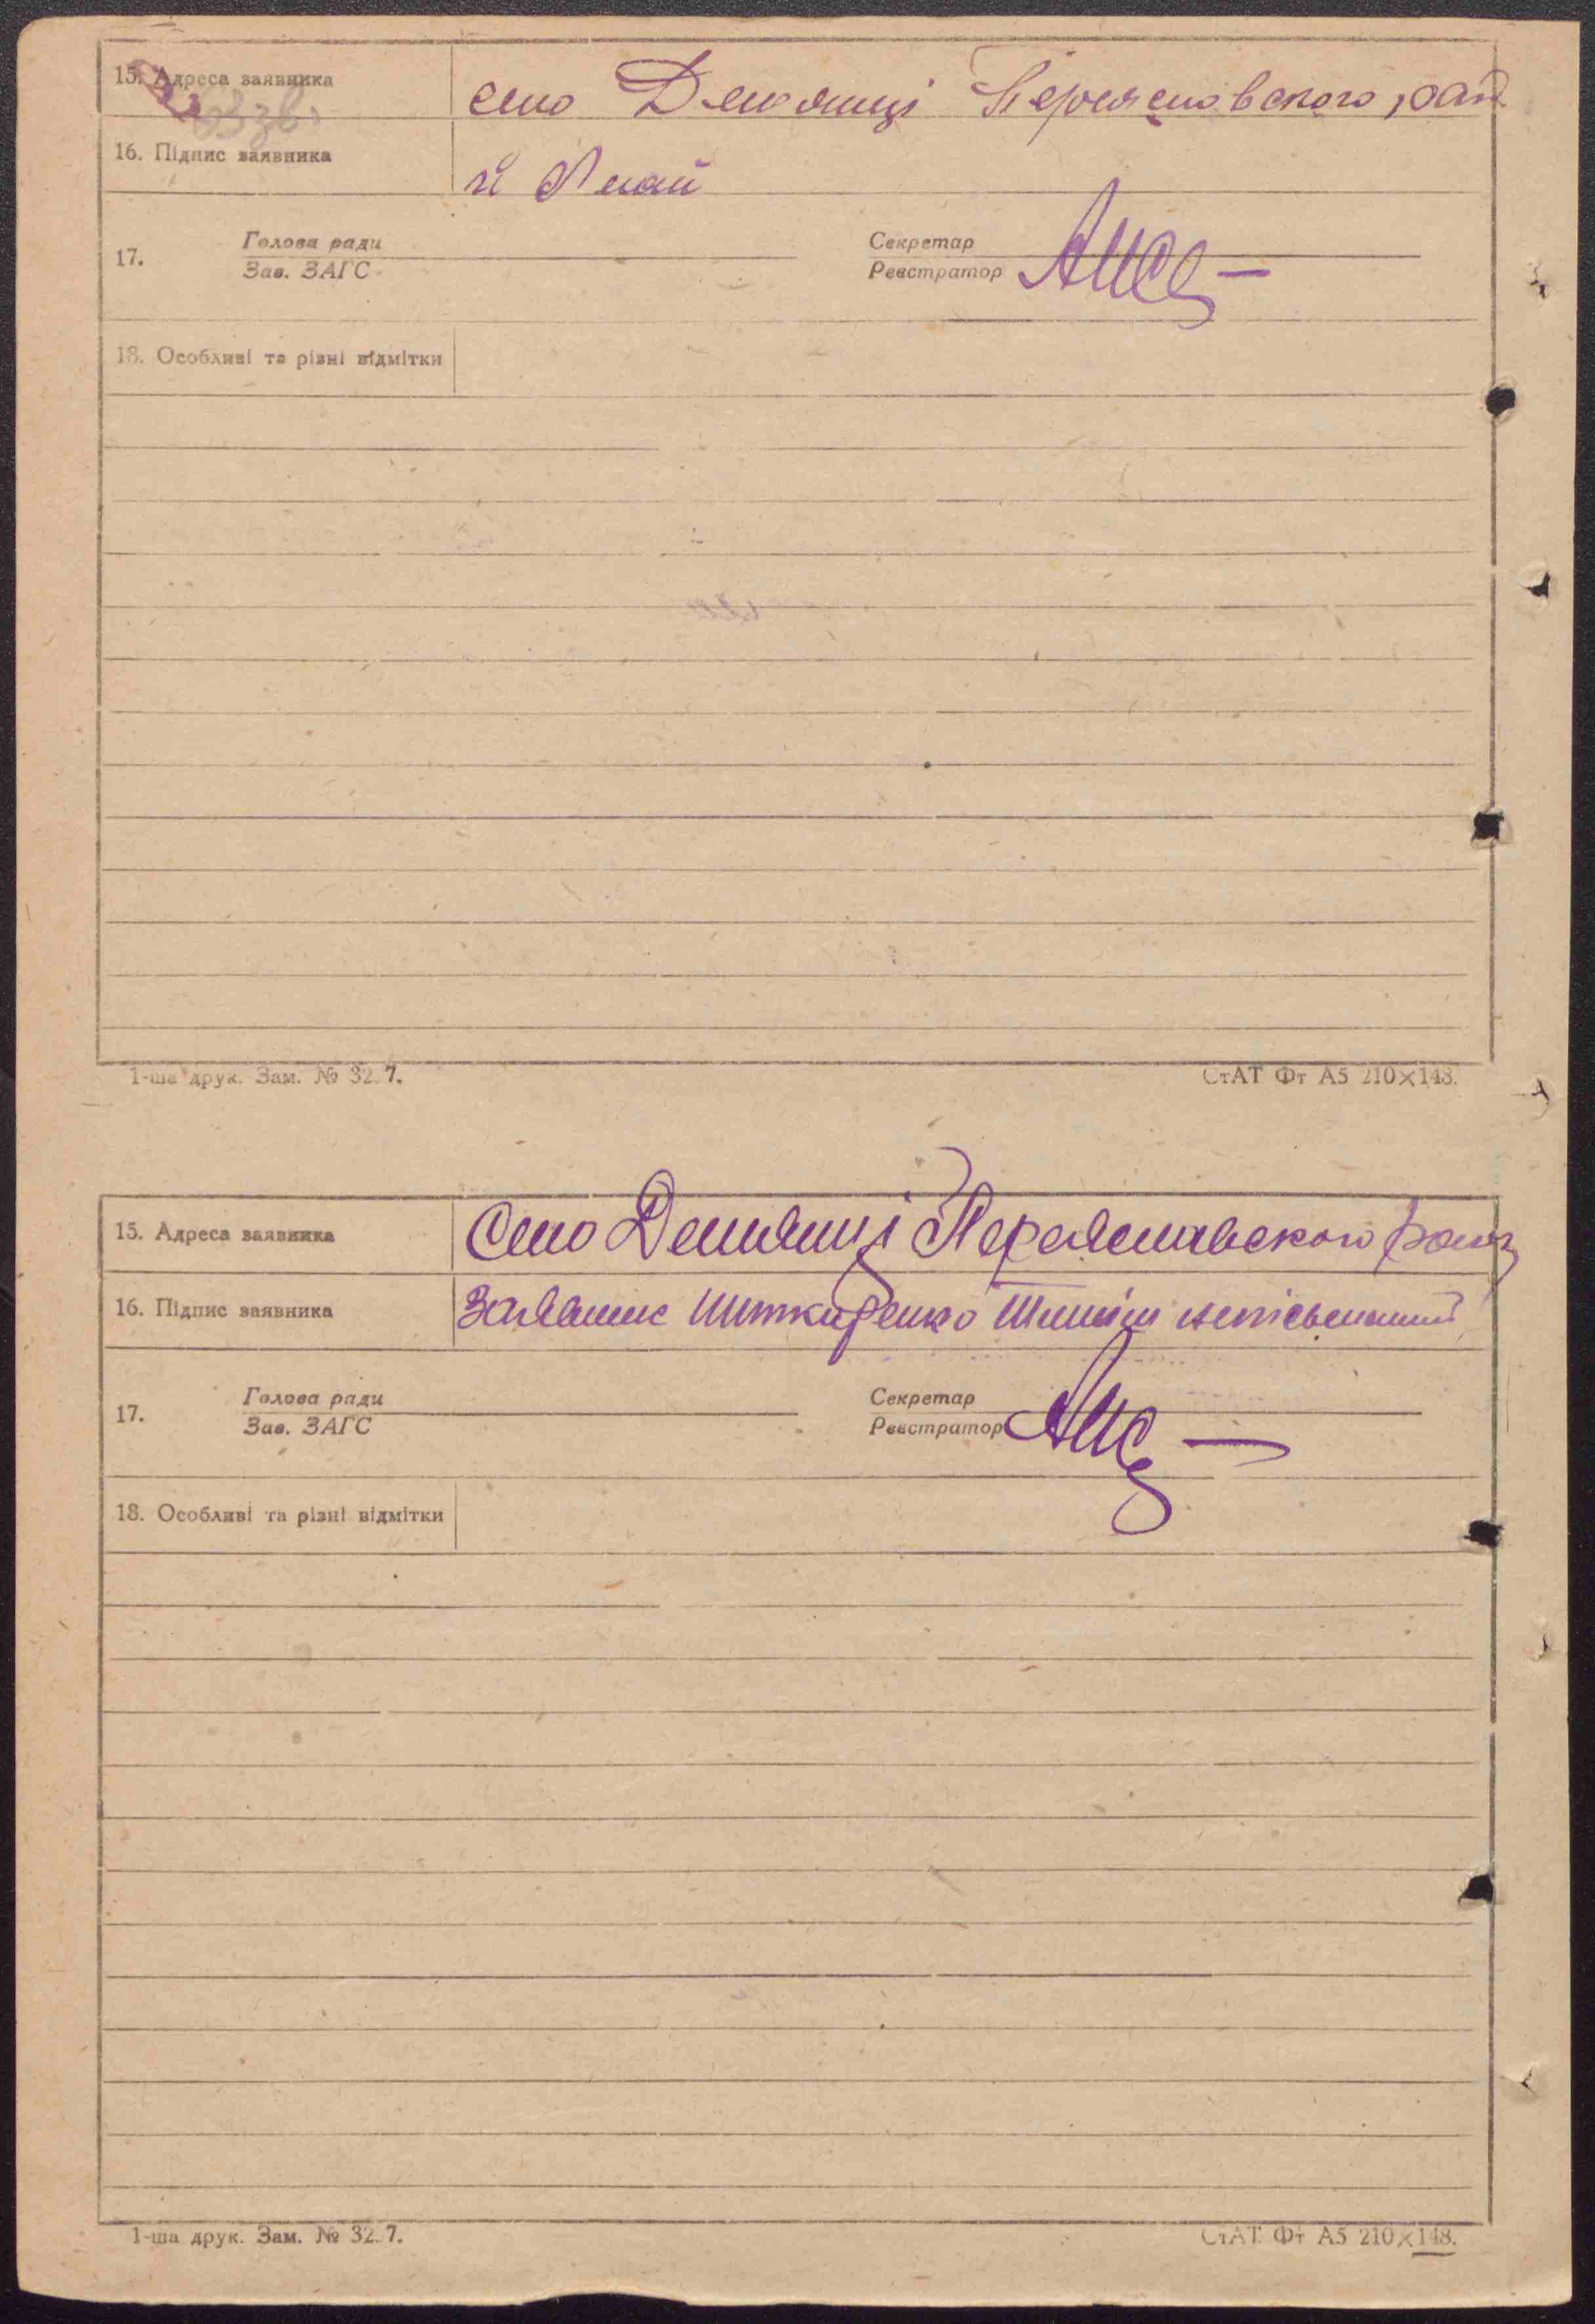 15. Адреса заявника село Демянці Переяславского рай
16. Підпис заявника
17. Голова ради Секретар
Зав. ЗАГС Реєстратор
18. Особливі та різні відмітки
1-ша друк. Зам. № 32 7. СтАТ Фт А5 210×148.
15. Адреса заявника Село Демянці Переяславского району
16. Підпис заявника Заявник неписьменний
17. Голова ради Секретар
Зав. ЗАГС Реєстратор
18. Особливі та різні відмітки
1-ша друк. Зам. № 32 7. СтАТ Фт А5 210×148.